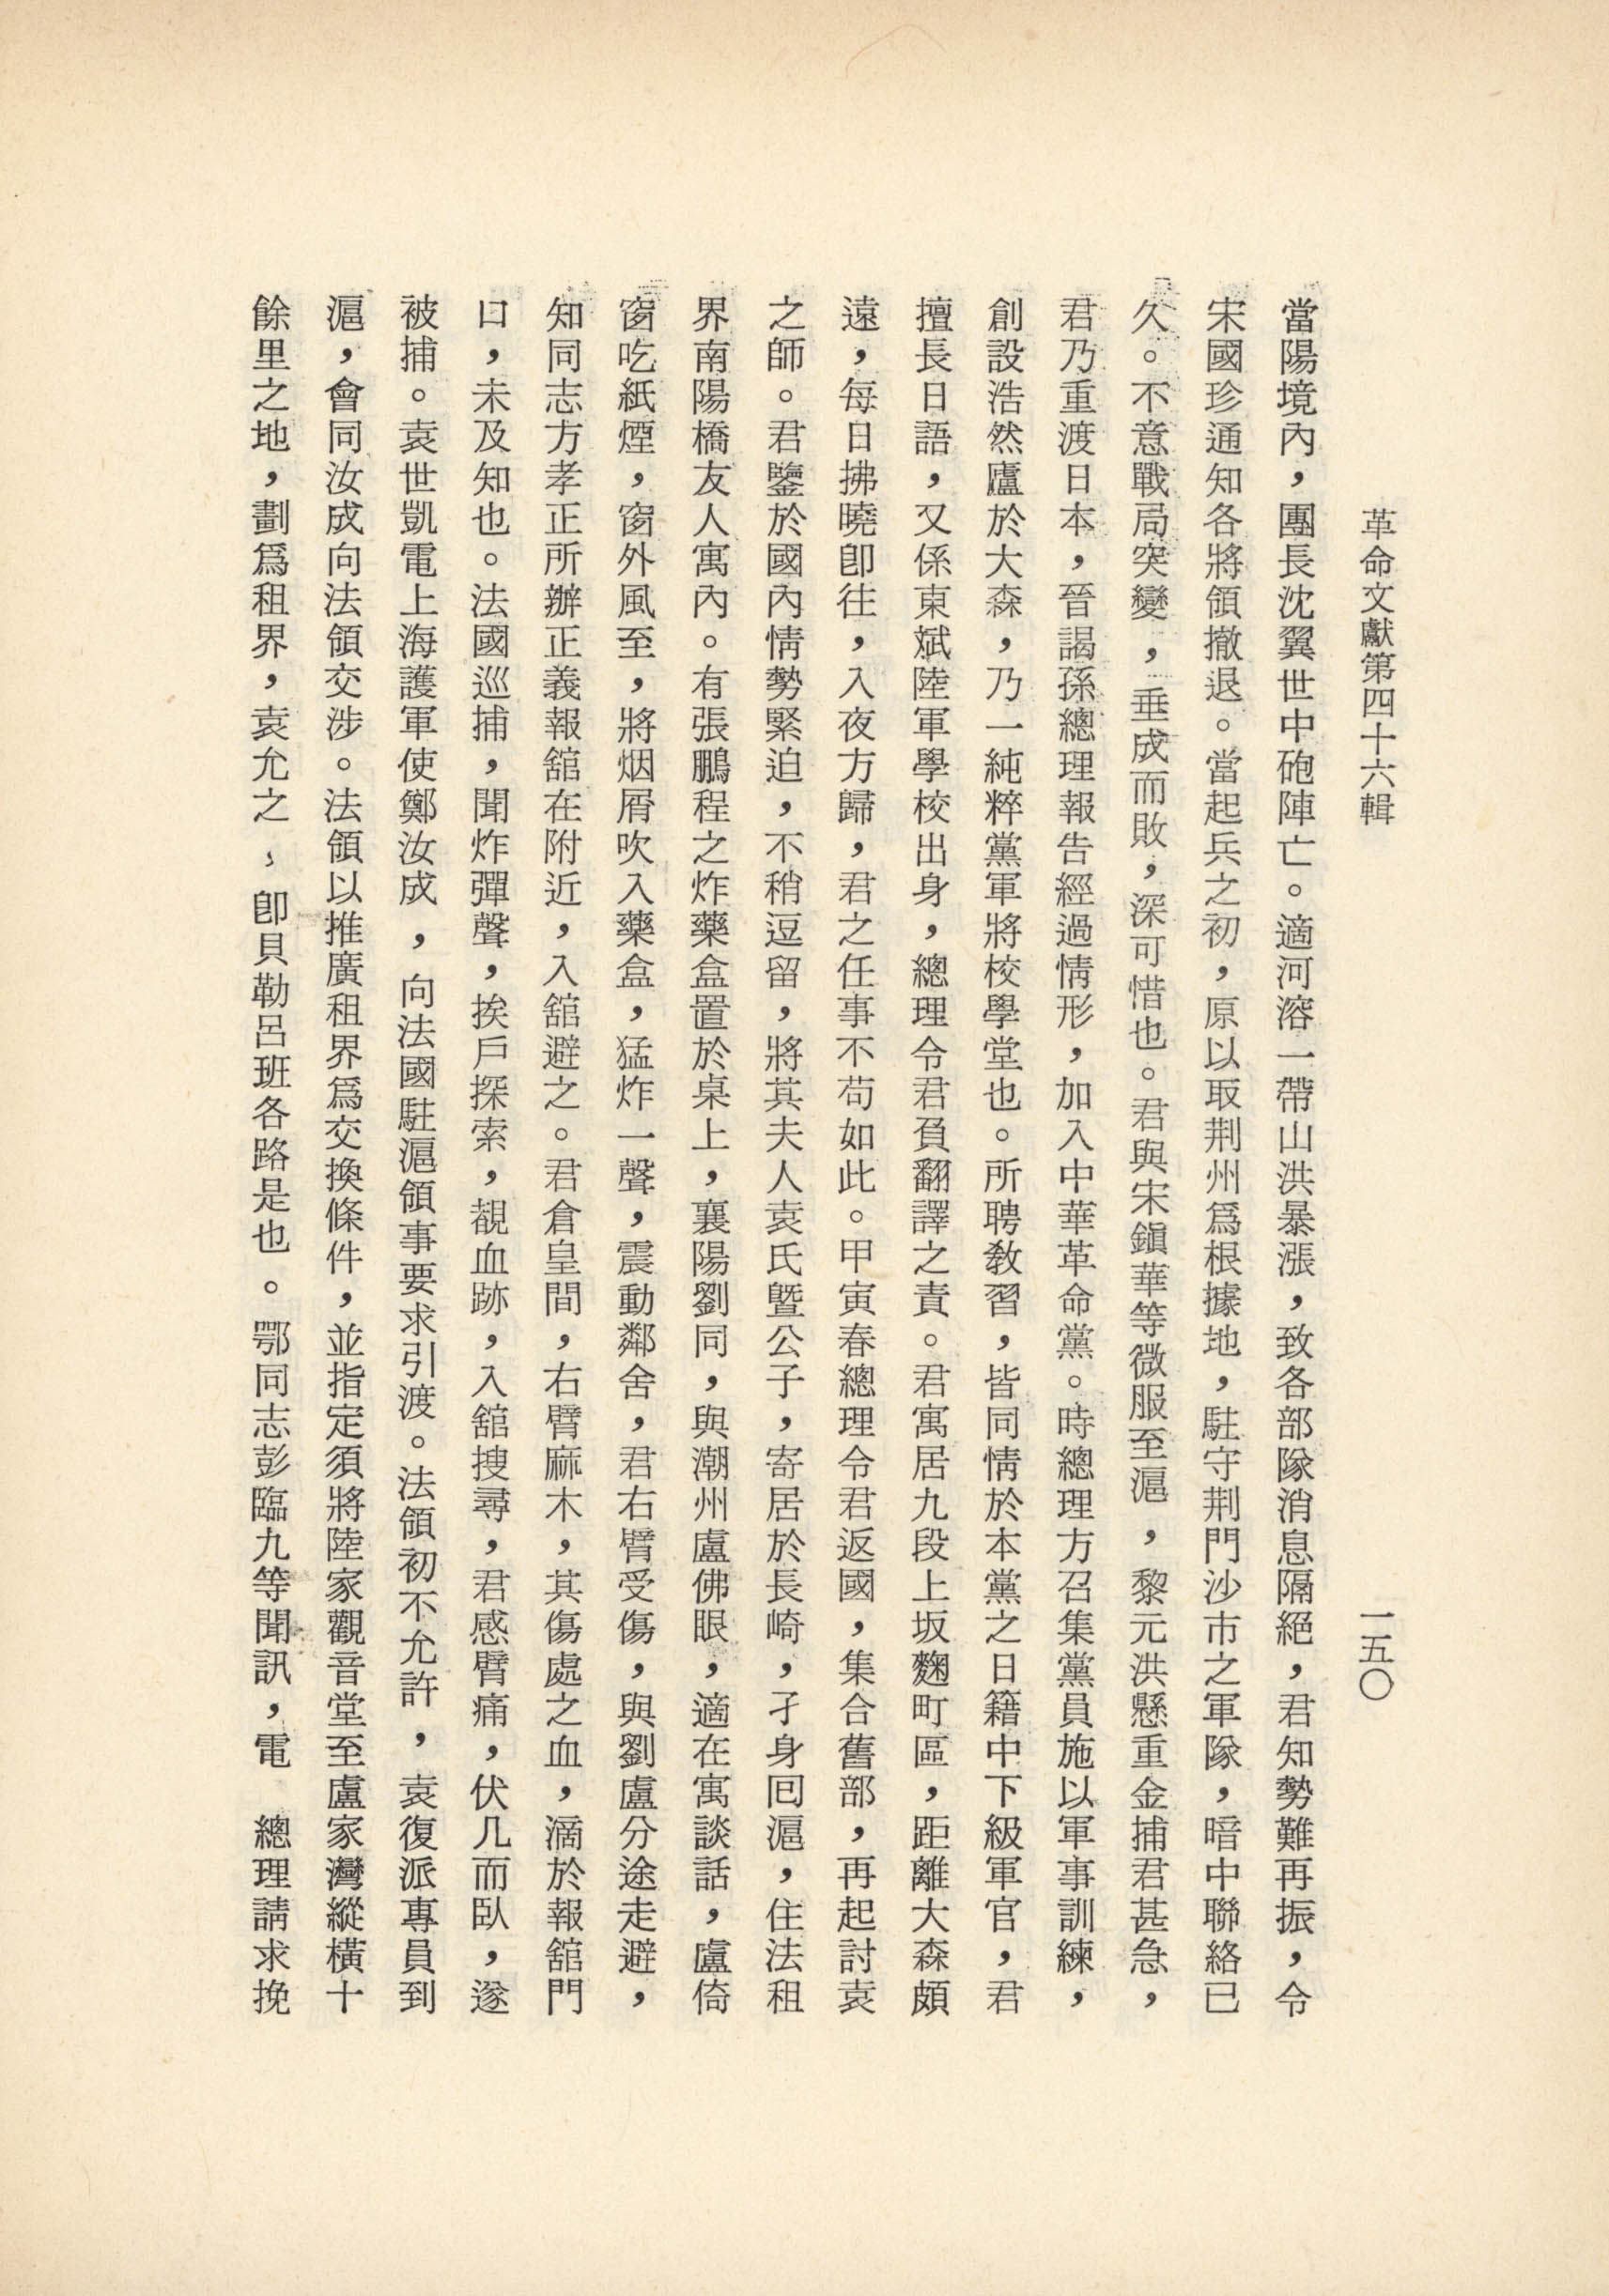 革命文獻第四十六輯
一五〇
當陽境內，團長沈翼世中砲陣亡。適河溶一帶山洪暴漲，致各部隊消息隔絕，君知勢難再振，令
宋國珍通知各將領撤退。當起兵之初，原以取荆州爲根據地，駐守荆門沙市之軍隊，暗中聯絡已
久。不意戰局突變，垂成而敗，深可惜也。君與宋鎭華等微服至滬，黎元洪懸重金捕君甚急，
君乃重渡日本，晉謁孫總理報告經過情形，加入中華革命黨。時總理方召集黨員施以軍事訓練，
創設浩然廬於大森，乃一純粹黨軍將校學堂也。所聘教習，皆同情於本黨之日籍中下級軍官，君
擅長日語，又係東斌陸軍學校出身，總理令君負翻譯之責。君寓居九段上坂麴町區，距離大森頗
遠，每日拂曉卽往，入夜方歸，君之任事不苟如此。甲寅春總理令君返國，集合舊部，再起討袁
之師。君鑒於國內情勢緊迫，不稍逗留，將其夫人袁氏曁公子，寄居於長崎，孑身回滬，住法租
界南陽橋友人寓內。有張鵬程之炸藥盒置於桌上，襄陽劉同，與潮州盧佛眼，適在寓談話，盧倚
窗吃紙煙，窗外風至，將烟屑吹入藥盒，猛炸一聲，震動鄰舍，君右臂受傷，與劉盧分途走避，
知同志方孝正所辦正義報舘在附近，入舘避之。君倉皇間，右臂麻木，其傷處之血，滴於報舘門
口，未及知也。法國巡捕，聞炸彈聲，挨戶探索，覩血跡，入舘搜尋，君感臂痛，伏几而臥，遂
被捕。袁世凱電上海護軍使鄭汝成，向法國駐滬領事要求引渡。法領初不允許，袁復派專員到
滬，會同汝成向法領交涉。法領以推廣租界爲交換條件，並指定須將陸家觀音堂至盧家灣縱橫十
餘里之地，劃爲租界，袁允之，卽貝勒呂班各路是也。鄂同志彭臨九等聞訊，電　總理請求挽